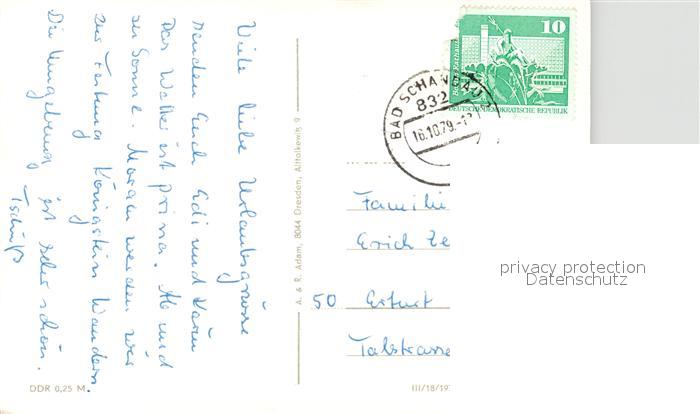 Viele liebe Urlaubsgrüsse
senden Euch Edi und Karin
Das Wetter ist prima. Ab und
zu Sonne. Morgen werden wir
zur Festung Königstein Wandern
Die Umgebung ist sehr schön.
Tschüß
DDR 0,25 M
A. & R. Adam, 8044 Dresden, Alttolkewitz 9
10
DEUTSCHE DEMOKRATISCHE REPUBLIK
BAD SCHANDAU
832
16.10.79.-1
Familie
Erich Ze
50 Erfurt
Talstrasse
III/18/19
privacy protection
Datenschutz